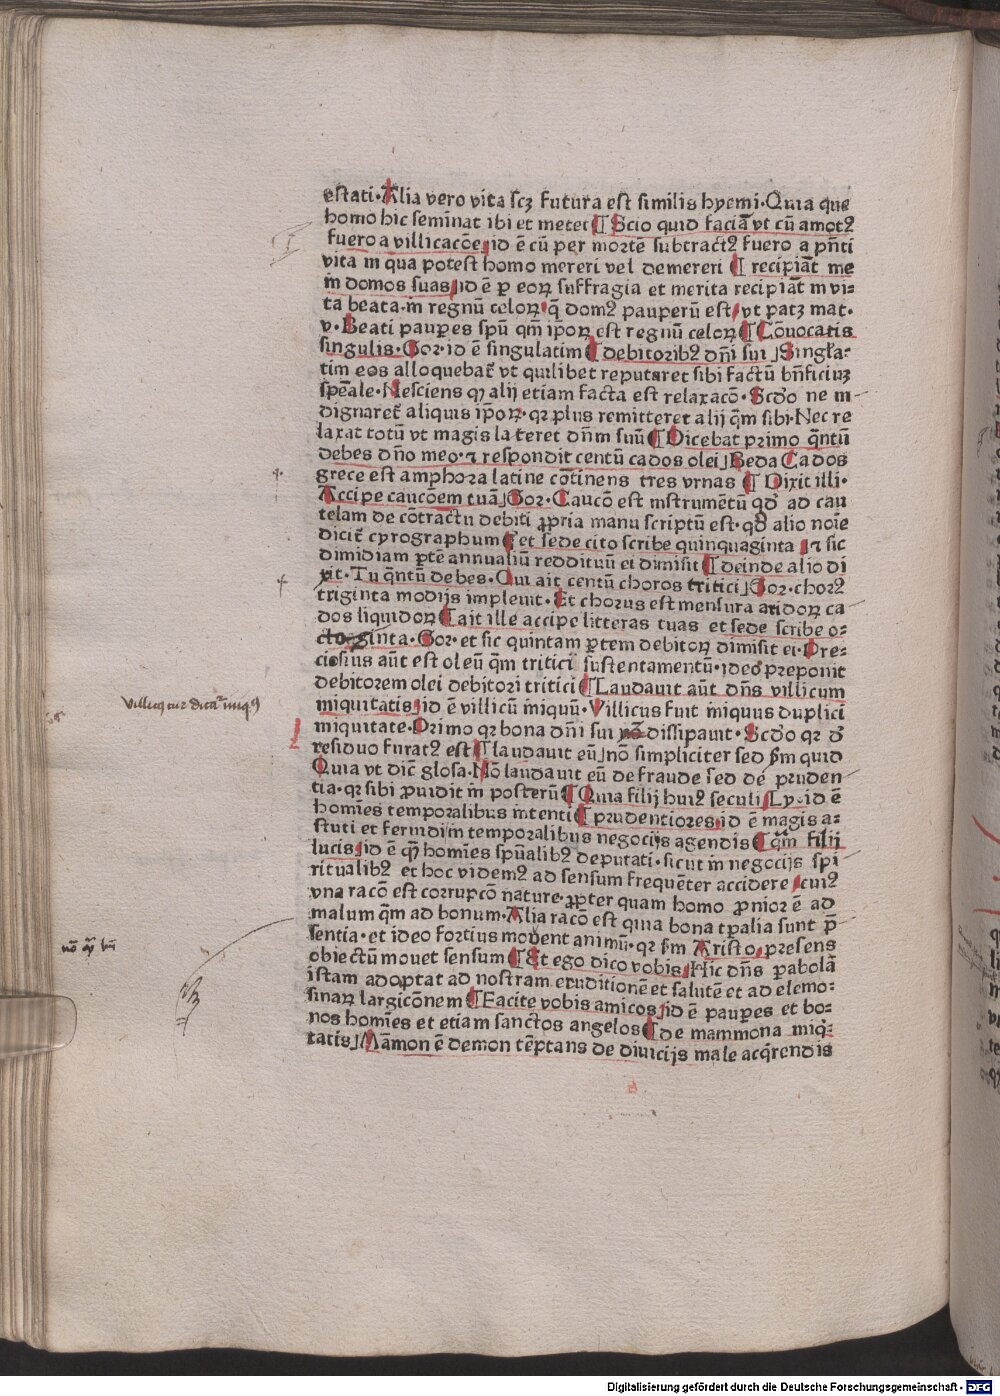 estati·Alia vero vita scꝫ futura est similis hyemi·Quia que
homo hic seminat ibi et metet ¶ Scio quid faciā vt cū amotꝰ
fuero a villicacōe id ē cū per mortē subtractꝰ fuero a pn̄ti
vita in qua potest homo mereri vel demereri ¶ recipiāt me
in domos suas id ē ꝑ eoꝝ suffragia et merita recipiāt in vi⸗
ta beata·in regnū celoꝝ q̄ domꝰ pauperū est vt patꝫ mat·
v·Beati pauꝑes spū qm̄ ip̄oꝝ est regnū celoꝝ ¶ Cōuocatis
singulis·Gor·id ē singulatim ¶ debitoribꝰ dn̄i sui Singl̄a⸗
tim eos alloquebat᷑ vt quilibet reputaret sibi factū bn̄ficiuꝫ
sp̄eale·Nesciens ꝙ alij etiam facta est relaxacō·Scd̄o ne in
dignaret᷑ aliquis ip̄oꝝ·qꝛ plus remitteret alij q̄m sibi·Nec re
laxat totū vt magis lateret dn̄m suū ¶ Dicebat primo q̄ntū
debes dn̄o meo·⁊ respondit centū cados olei Beda Cados
grece est amphora latine cōtinens tres vrnas ¶ Dixit illi·
Accipe caucōem tuā Gor·Caucō est instrumētū qd̄ ad cau
telam de cōtractu debiti ꝓpria manu scriptū est·qd̄ alio noīe
dicit᷑ cyrographum ¶ et sede cito scribe quinquaginta ⁊ sic
dimidiam ꝑtē annualiū reddituū ei dimisit ¶ deinde alio di
xit·Tu q̄ntū debes·Qui ait centū choros tritici Gor·chorꝰ
triginta modijs impleuit·Et chorus est mensura aridoꝝ ca
dos liquidoꝝ ¶ ait ille accipe litteras tuas et sede scribe o⸗
ctoginta·Gor·et sic quintam ꝑtem debitoꝝ dimisit ei·Pre⸗
ciosius aūt est oleū q̄m tritici sustentamentū·ideo preponit
debitorem olei debitori tritici ¶ Laudauit aūt dn̄s villicum
iniquitatis id ē villicū iniquū·Villicus fuit iniquus duplici
iniquitate·Primo qꝛ bona dn̄i sui dissipauit·Scd̄o qꝛ d̄
residuo furatꝰ est ¶ laudauit eū nō simpliciter sed ẜm quid
Quia vt dic̄ glosa·Nō laudauit eū de fraude sed de pruden
tia·qꝛ sibi ꝓuidit in posterū ¶ Quia filij huiꝰ seculi Ly·id ē
homīes temporalibus intenti ¶ prudentiores id ē magis a⸗
stuti et feruidi in temporalibus negocijs agendis ¶ q̄m filij
lucis id ē q̄ꝫ homīes spūalibꝰ deputati·sicut in negocijs spi
ritualibꝰ et hoc videmꝰ ad sensum frequēter accidere cuiꝰ
vna racō est corrupcō nature·ꝓpter quam homo ꝓnior ē ad
malum q̄m ad bonum·Alia racō est quia bona tꝑalia sunt p̄
sentia·et ideo fortius mouent animū·qꝛ ẜm Aristo presens
obiectū mouet sensum ¶ Et ego dico vobis Hic dn̄s ꝑabolā
istam adoptat ad nostram eruditionē et salutē et ad elemo⸗
sinaꝝ largicōnem ¶ Facite vobis amicos id ē pauꝑes et bo⸗
nos homīes et etiam sanctos angelos ¶ de mammona iniq̄⸗
tatis Māmon ē demon tēptans de diuicijs male acq̄rendis